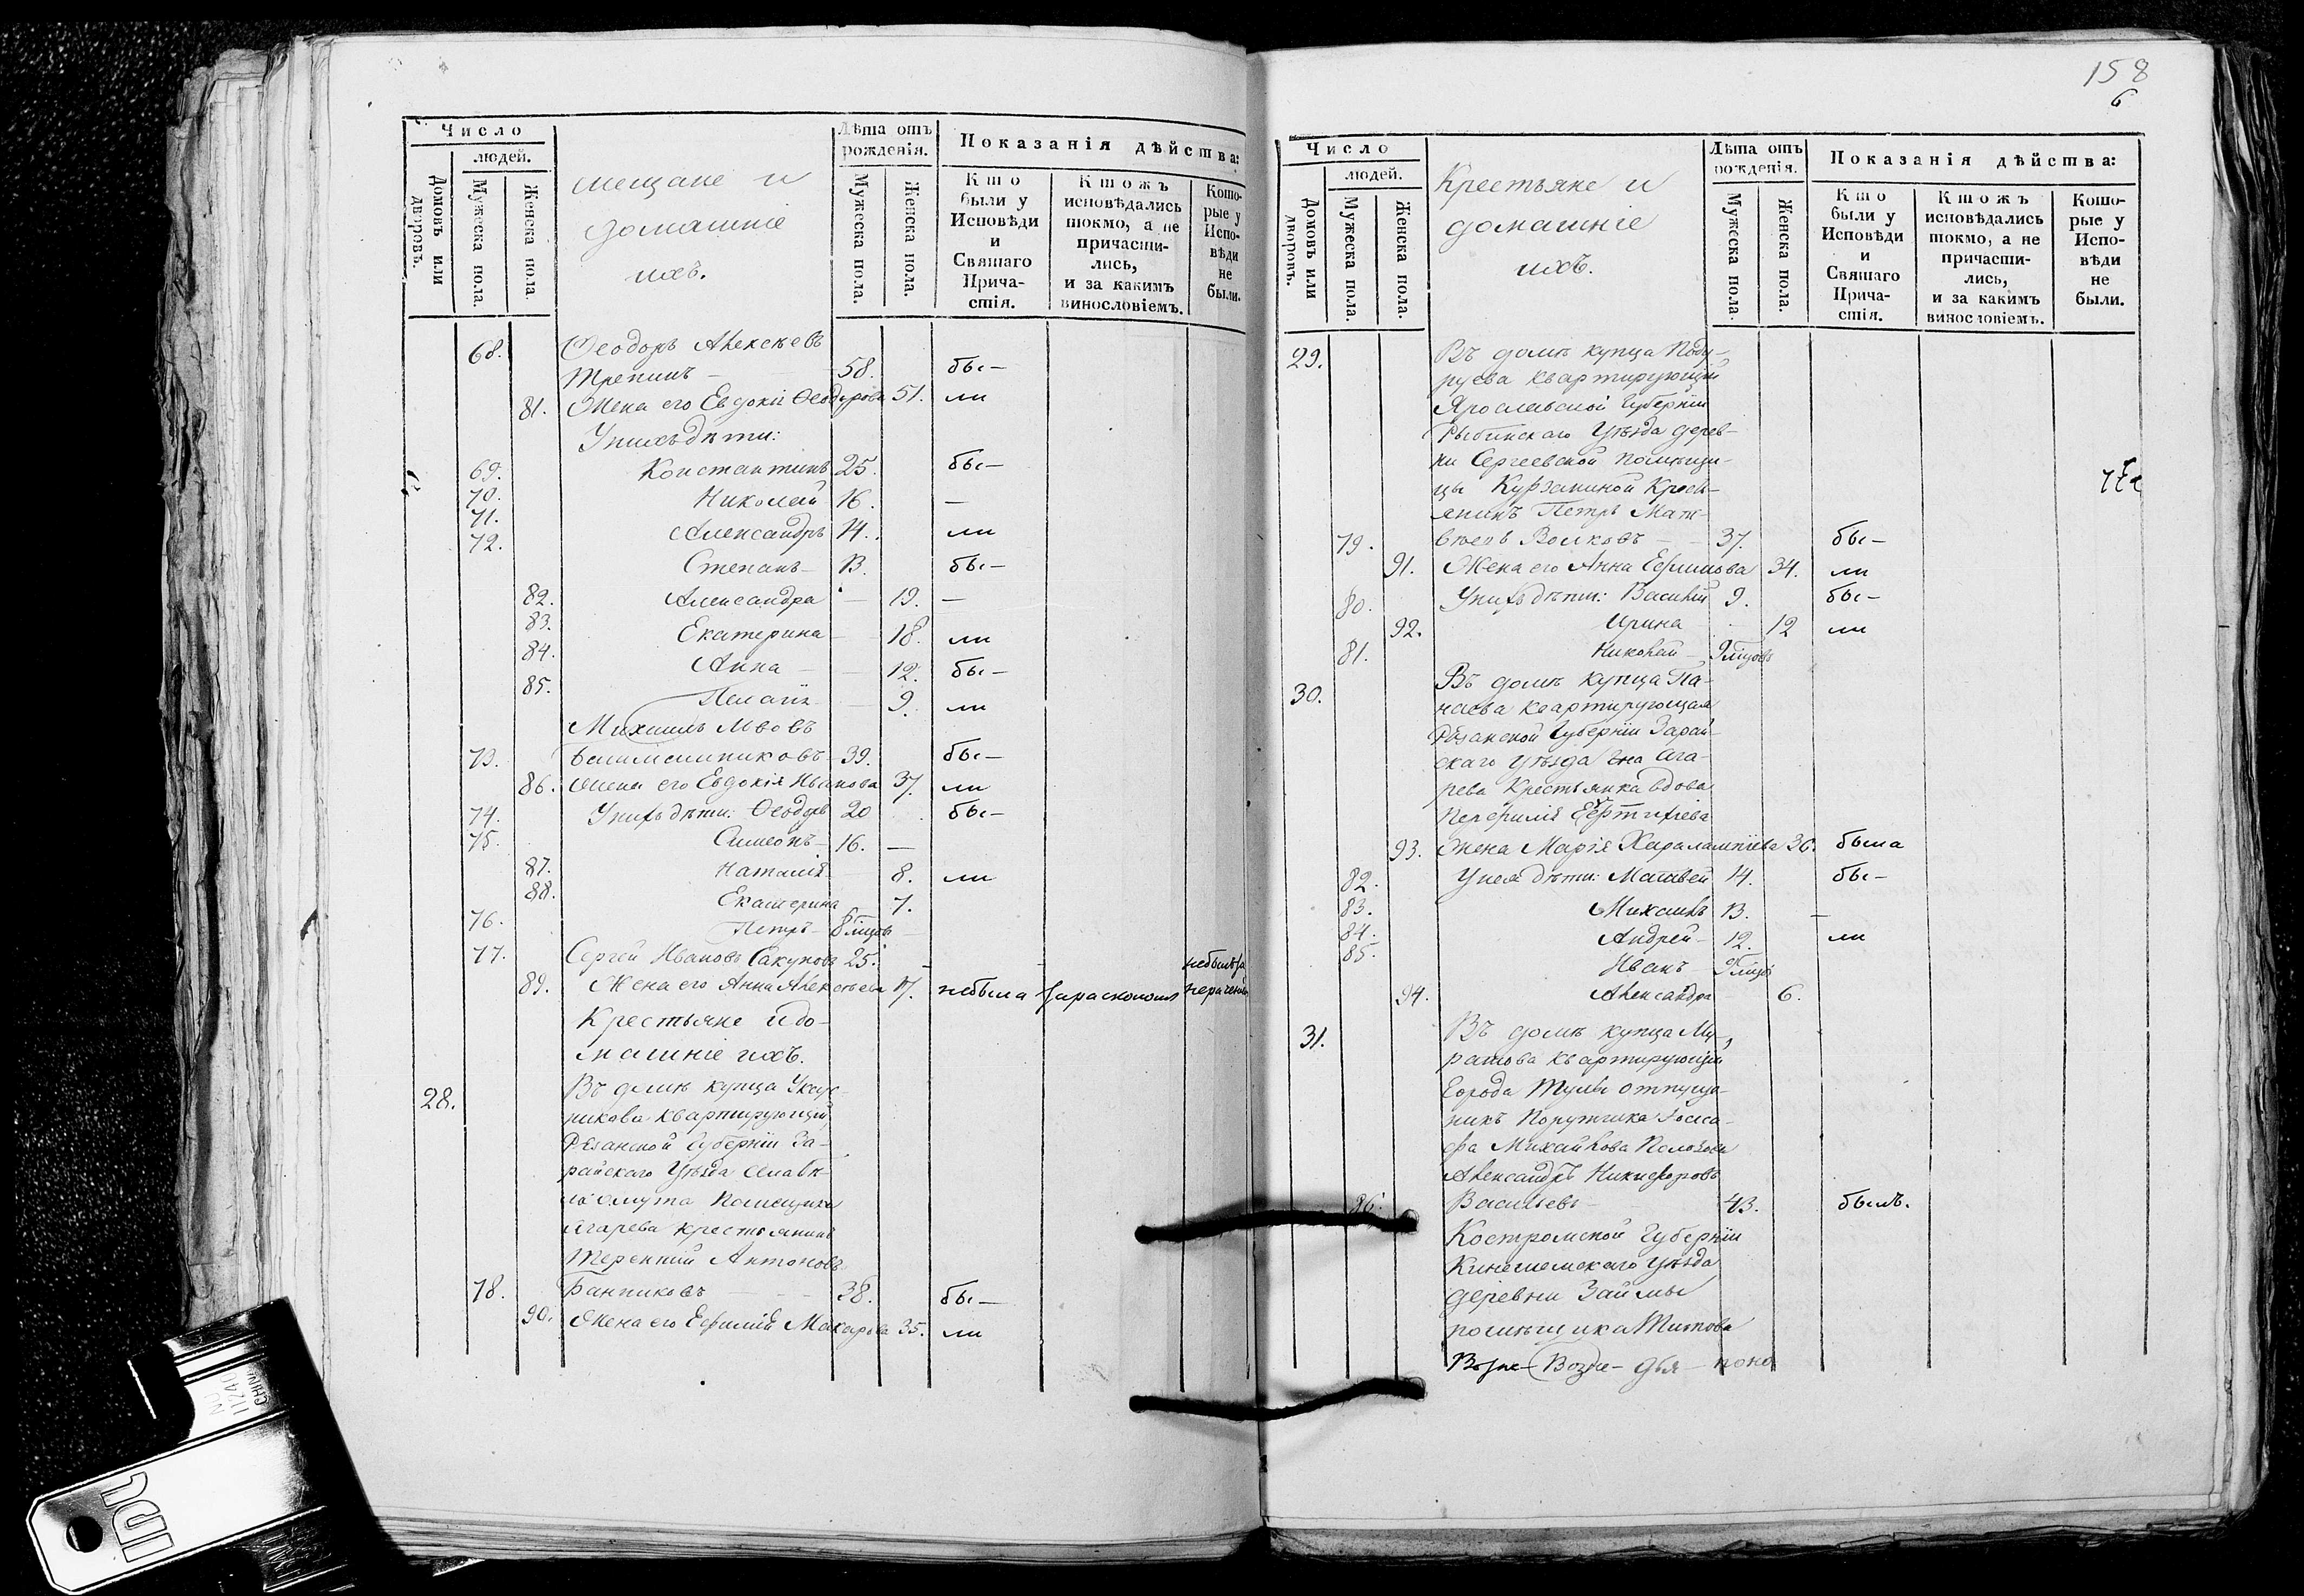 Число
людей.
Домовъ или дворовъ.
Мужеска пола.
Женска пола.
мещане и
домашніе
ихъ.
Лѣта отъ
рожденія.
Мужеска пола.
Женска пола.
Показанія дѣйства:
Кто
были у
Исповѣди
и
Святаго
Прича-
стія.
Ктожъ
исповѣдались
токмо, а не
причасти-
лись,
и за какимъ
винословіемъ.
Кото-
рые у
Испо-
вѣди
не
были.
68. Ѳеодоръ Алексѣевъ
Трепинъ — 58. бы—
81. Жена его Евдокія Ѳеодорова 51. ли
У нихъ дѣти:
69. Константинъ 25. бы—
70. Николай 16. —
71. Александръ 14. ли
72. Степанъ 13. бы—
82. Александра — 19. —
83. Екатерина — 18. ли
84. Анна — 12. бы—
85. Пелагія — 9. ли
Михаилъ Львовъ
73. 39. бы—
86. Жена его Евдокія Иванова 37. ли
74. У нихъ дѣти: Ѳеодоръ 20 бы—
75. Симеонъ 16. —
87. Наталія — 8. ли
88. Екатерина 7.
76. Петръ — 8 мцовъ
77. Сергей Ивановъ Сакуновъ 25. — — небылъ за
89. Жена его Анна Алексѣева 17. небыла за расколомъ нераченіе
Крестьяне и до-
машніе ихъ.
28. Въ домѣ купца
никова квартирующій
Рязанской Губерніи За-
райскаго Уѣзда
омута Помещика
Агарева крестьянинъ
Терентій Антоновъ
78. Банниковъ — 38. бы—
90. Жена его Ефимія Макарова 35. ли
158
6
Число
людей.
Домовъ или дворовъ.
Мужеска пола.
Женска пола.
Крестьяне и
домашніе
ихъ.
Лѣта отъ
рожденія.
Мужеска пола.
Женска пола.
Показанія дѣйства:
Кто
были у
Исповѣди
и
Святаго
Прича-
стія.
Ктожъ
исповѣдались
токмо, а не
причасти-
лись,
и за какимъ
винословіемъ.
Кото-
рые у
Испо-
вѣди
не
были.
29. Въ домѣ купца Поду-
руева квартирующій
Ярославской Губерніи
Рыбинскаго Уѣзда дерев-
ни Сергеевской помѣщи-
цы Кресть-
янинъ Петръ Мат-
79. вѣевъ Волковъ — 37. бы—
91. Жена его Анна Ефимова 34. ли
80. У нихъ дѣти: Василій 9. бы—
92. Ирина 12 ли
81. Николай — 9 мцовъ
30. Въ домѣ купца Па-
наева квартирующая
Рязанской Губерніи Зарай-
скаго Уѣзда Ага-
рева Крестьянка вдова
93. Жена Марія Харалампіева 36. была
82. У нея дѣти: Матвей 14. бы—
83. Михаилъ 13. —
84. Андрей — 12. ли
85. Иванъ — 9 мцовъ
94. Александра 6.
31. Въ домѣ купца Му-
ратова квартирующій
Города Тулы отпуще-
никъ Порутчика Іоса-
фа Михайлова
Александръ Никифоровъ
86. Васильевъ — 43. былъ.
Костромской Губерніи
Кинешемскаго Уѣзда
деревни Займы
помѣщика Титова